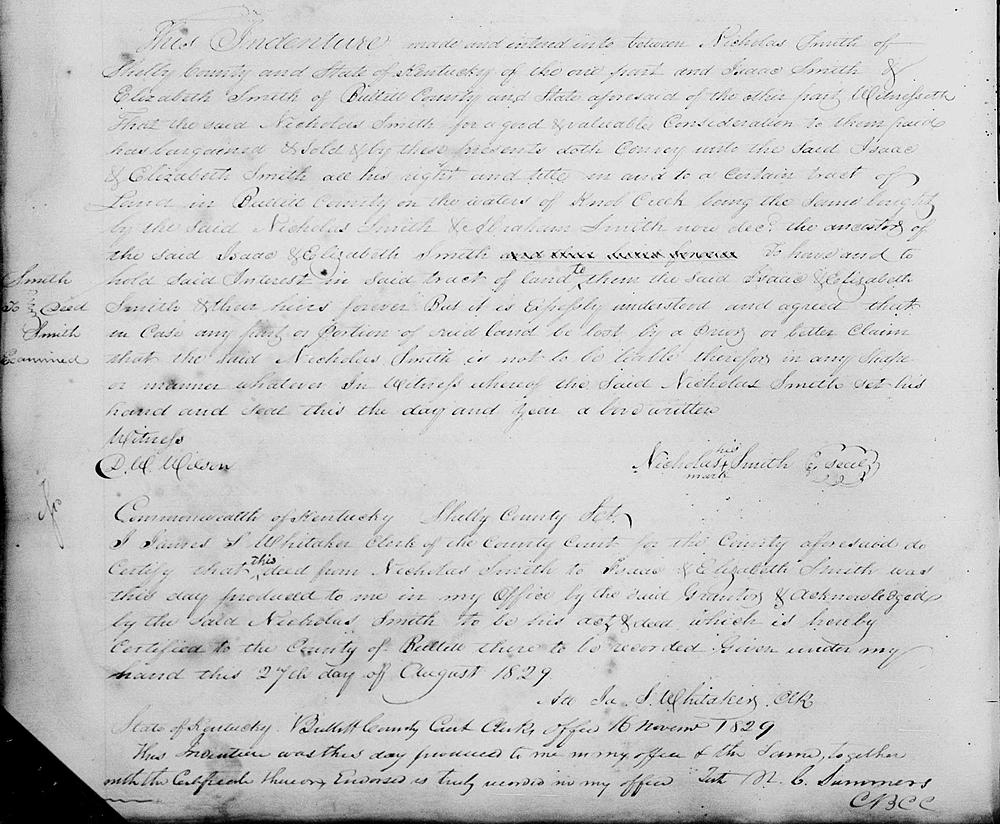 This Indenture made and entend into between Nicholas Smith of
Shelby County and State of Kentucky of the one part and Isaac Smith &
Elizabeth Smith of Bullitt County and State aforesaid of the other part Witnesseth
That the said Nicholas Smith for a good & valuable Consideration to them paid
has bargained & sold & by these presents doth Convey unto the said Isaac
& Elizabeth Smith all his right and title in and to a Certain tract of
Land in Bullitt County on the waters of Knob Creek being the Same bought
by the Said Nicholas Smith & Abraham Smith now decd the ancestor of
the said Isaac & Elizabeth Smith To have and to
hold said Interest in said tract of land to them the said Isaac & Elizabeth
Smith & their heirs forever But it is Expressly understood and agreed that
in Case any part or Portion of said land be lost by a Prior or better Claim
that the said Nicholas Smith is not to be liable therefor in any Shape
or manner whatever In Witness whereof the Said Nicholas Smith set his
hand and seal this the day and year above written
Witness
D. W. Wilson
Nicholas his mark Smith Seal
Smith
To Deed
Smith
Examined
Commonwealth of Kentucky Shelby County Sct.
I James S Whitaker Clerk of the County Court for the County aforesaid do
Certify that this deed from Nicholas Smith to Isaac & Elizabeth Smith was
this day produced to me in my Office by the said Grantor & Acknowledged
by the Said Nicholas Smith to be his act & deed which is hereby
Certified to the County of Bullitt there to be recorded Given under my
hand this 27th day of August 1829
Ja. S. Whitaker Clk
State of Kentucky Bullitt County Court Clerks office 16 Novem 1829
This Indenture was this day produced to me in my office & the Same, together
with the Certificate thereon Endorsed is truly recorded in my office Test N. C. Summers
CBCC